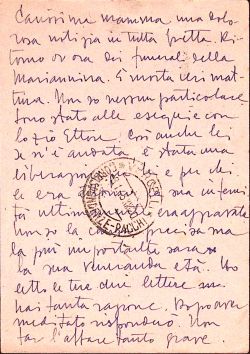 Carissima mamma una dolo-
rosa notizia in tutta fretta. Ri-
torno or ora dei funerali della
Mariannina. È morta ieri mat-
tina. Non so nessun particolare
sono stato alle esequie con
lo zio Ettore. Così anche lei
se n'è andata è stata una
liberazione lei e per chi
le era
ultimi era apparsa
non so la causa precisa ma
la più importante sarà
la sua veneranda età. Ho
letto le tue due lettere
hai tanta ragione. Dopo aver
meditato risponderò. Non
far l'affare tanto grave.
PACCHI